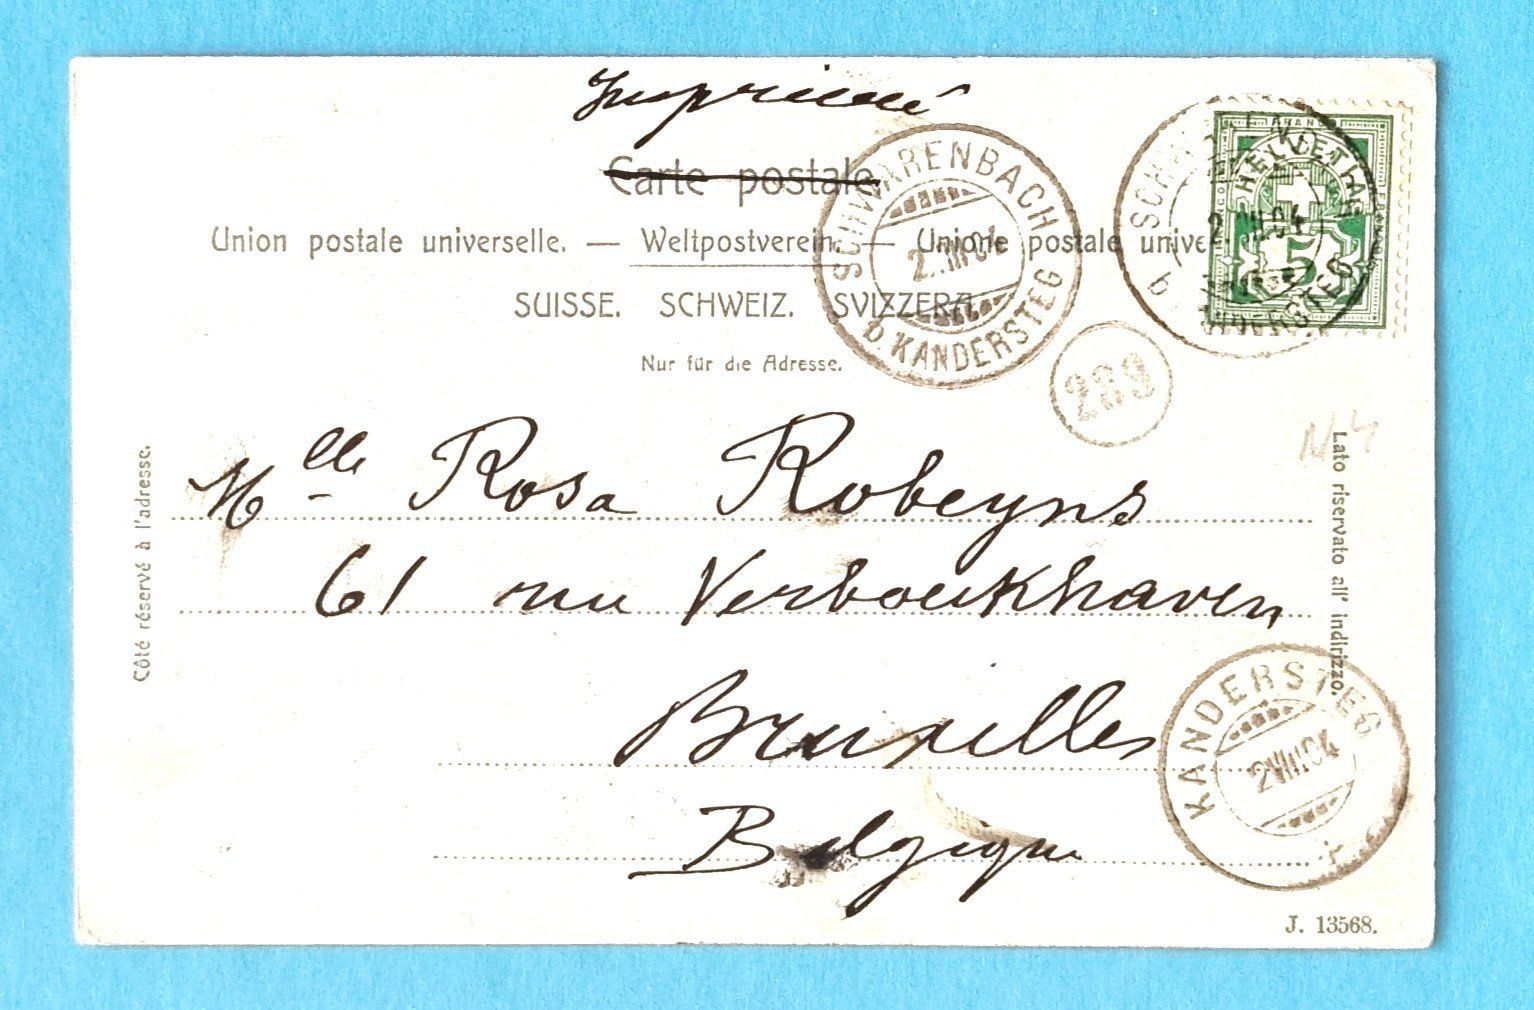 Imprimé
Carte postale
Union postale universelle. — Weltpostverein. — Unione postale unive
SUISSE. SCHWEIZ. SVIZZERA.
Nur für die Adresse.
SCHWARENBACH
2.VIII.04
b. KANDERSTEG
FRANCO
HELVETIA
5
2.VIII.04
289
N4
Côté réservé à l'adresse.
Lato riservato all' indirizzo.
Mlle Rosa Robeyns
61 rue Verboeckhaven
Bruxelles
Belgique
KANDERSTEG
2.VIII.04
J. 13568.